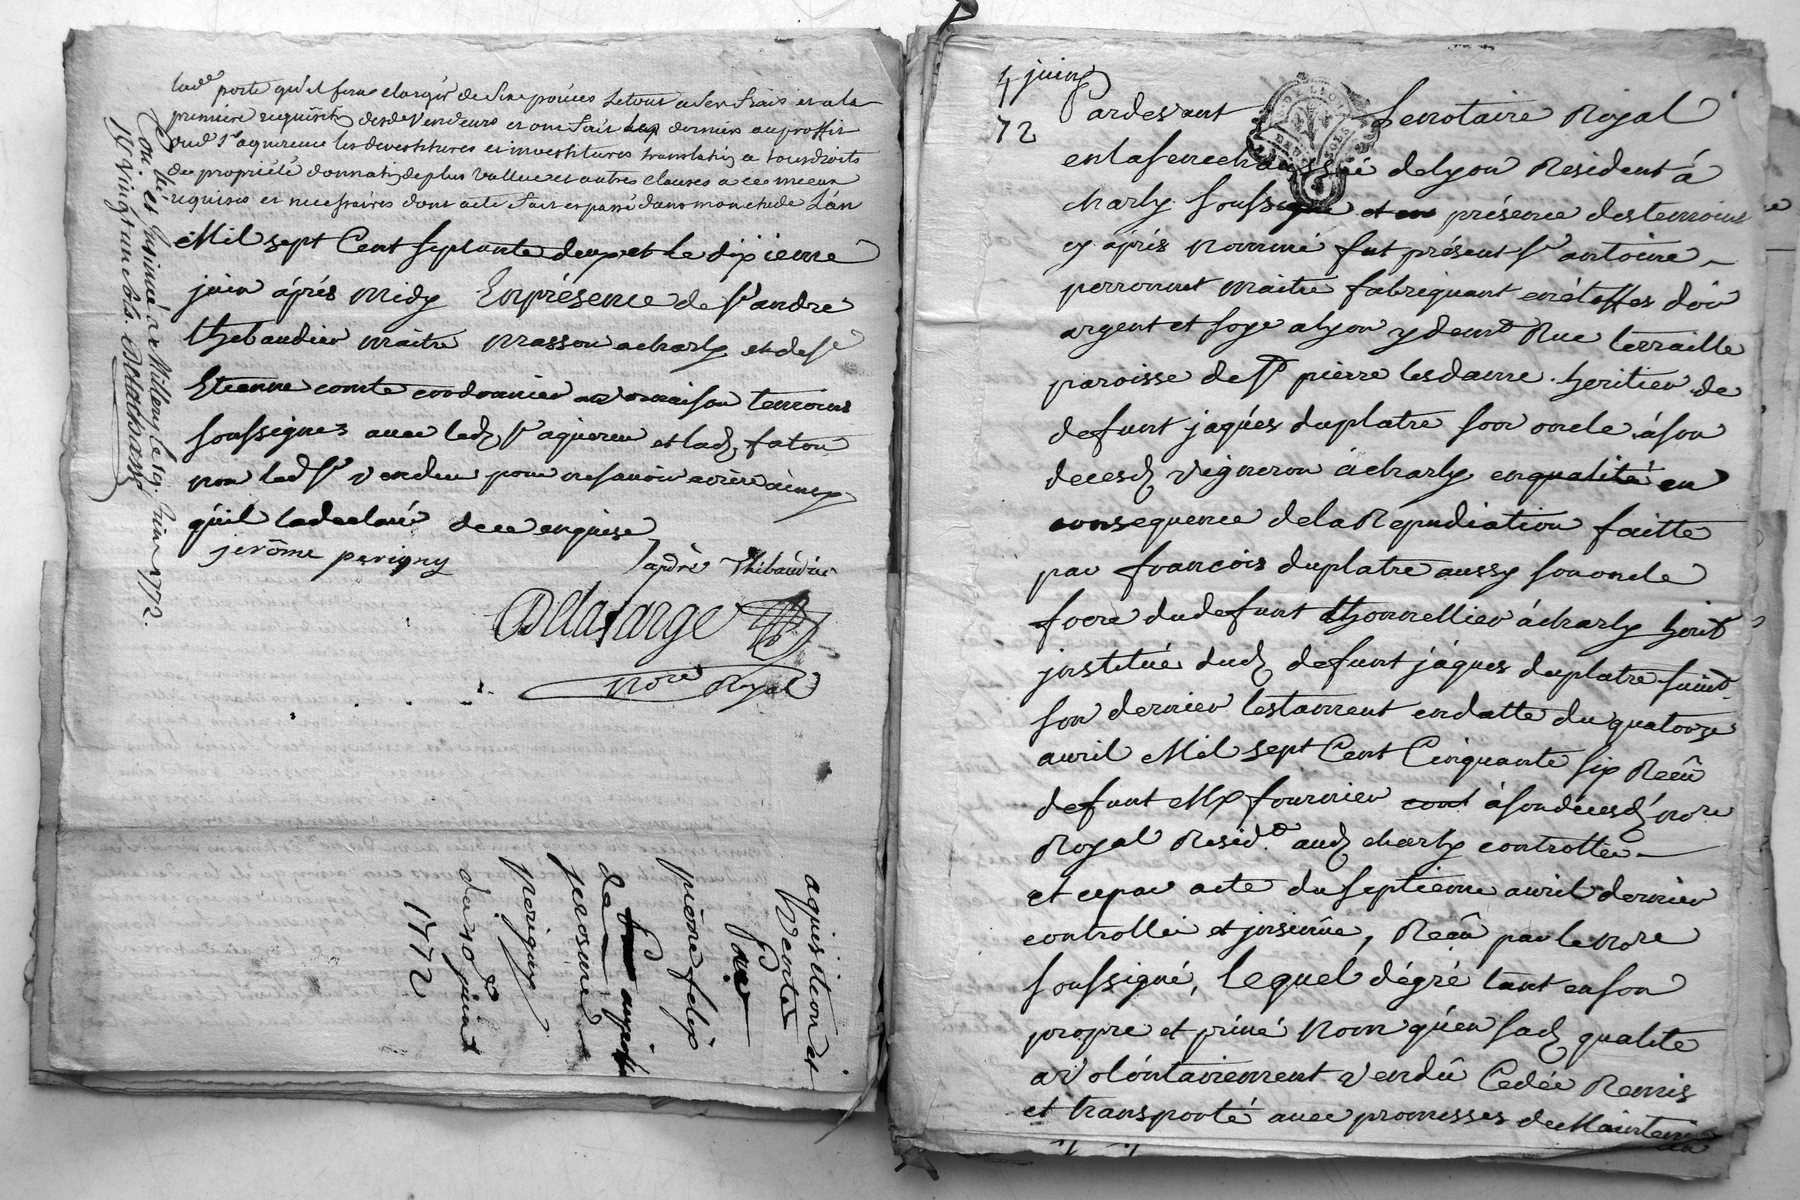 porte qu'il fera elargir de six pouces a ses frais et a la
premiere requisition des vendeurs et ont fait dernier au proffit
dud Sr aquereur les devestitures et investitures translation a tous droits
de propriété donnation de plus vallue et autres clauses a ce mieux
requises et necessaires dont acte fait et passé dans mon etude L'an
Mil sept Cent septante deux et le dixieme
juin áprés midy En présence de Sr andre
thebaudier maitre masson a charly et de Sr
Etienne comte cordonnier temoins
soussignés avec led Sr aquereur et
non led Sr vendeur pour ne savoir ecrire ainsy
qu'il la declaré de ce enquis
jerôme perigny
andré Thibaudier
Delafarge
Nore Royal
Con.lé et Insinué a Millery le 19 Juin 1772.
Rt vingt un sols.
aquisition et
Vente
Par
pierre felix
de
jerosme
perigny
du 10e juin
1772
4 juin
72
Pardevant Le notaire Royal
en la senechaussée de lyon Resident á
charly soussigné et en présence des temoins
cy áprés nommé fut présent Sr antoine
perronnet maitre fabriquant en étoffes d'or
argent et soye a lyon y demt Rue terraille
paroisse de St pierre les dame heritier de
defunt jáqués duplatre son oncle á son
deces vigneron á charly en qualité en
consequence de la Repudiation faitte
par francois duplatre aussy son oncle
frere du defunt thonnellier á charly herit
jnstitué dud defunt jáques duplatre suivt
son dernier testament en datte du quatorze
avril Mil sept Cent Cinquante six Recû
defunt Me fournier á son deces nore
Royal Residt aud charly controllé
et ce par acte du septieme avril dernier
controllé et jnsinûé, Recû par le nore
soussigné, lequel dégré tant en son
propre et privé nom qu'en sad qualité
a volóntairement vendû Cedée Remis
et transporté avec promesses de Maintenir